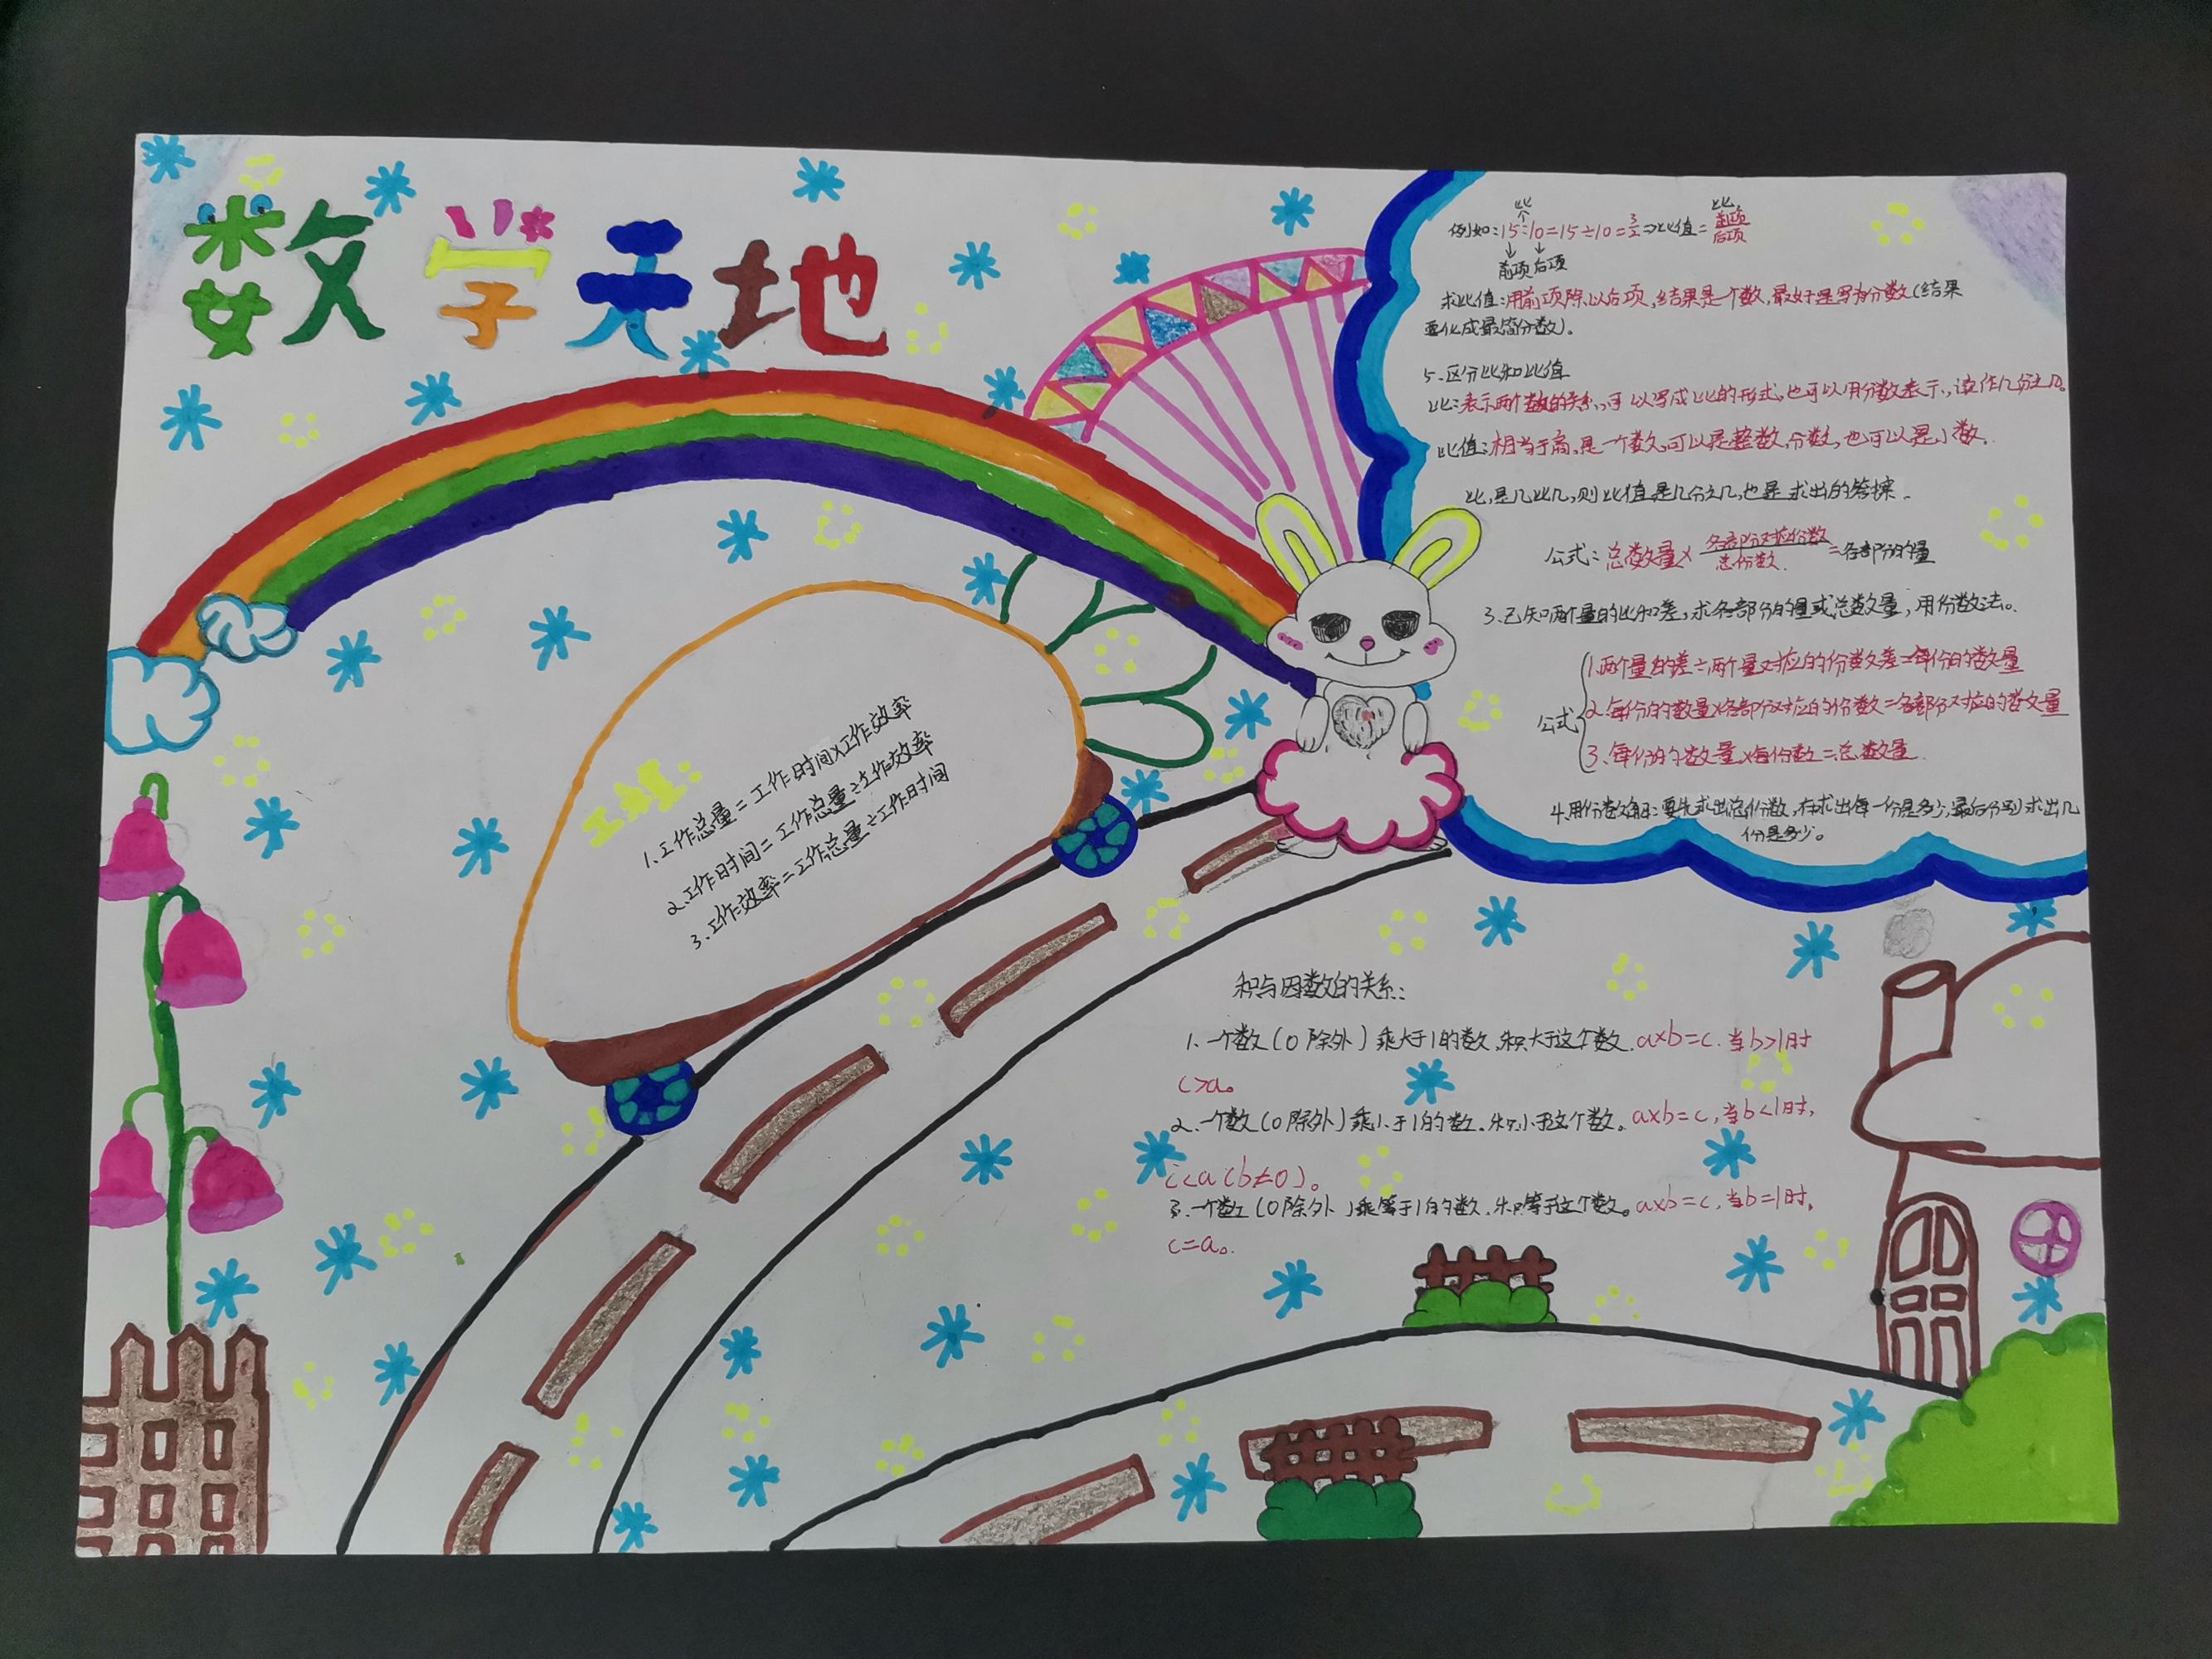 数学天地
比
比
例如:15:10=15÷10=3/2⇒比值=前项/后项
前项 后项
求比值:用前项除以后项,结果是一个数,最好是写为分数(结果
要化成最简分数)。
5.区分比和比值
比:表示两个数的关系,可以写成比的形式,也可以用分数表示,读作几分之几。
比值:相当于商,是一个数,可以是整数,分数,也可以是小数。
比,是几比几,则比值是几分之几,也是求出的答案.
公式:总数量×各部分对应份数/总份数=各部分的量
3.已知两个量的比和差,求各部分的量或总数量,用份数法。
公式
1.两个量的差÷两个量对应的份数差=每份的数量
2.每份的数量×各部分对应的份数=各部分对应的数量
3.每份的数量×每份数=总数量.
4.用份数解:要先求出总份数,在求出每一份是多少,最后分别求出几
份是多少。
工程:
1.工作总量=工作时间×工作效率
2.工作时间=工作总量÷工作效率
3.工作效率=工作总量÷工作时间
积与因数的关系:
1.一个数(0除外)乘大于1的数,积大于这个数.a×b=c.当b>1时
c>a。
2.一个数(0除外)乘小于1的数.积小于这个数。a×b=c,当b<1时,
c<a(b≠0)。
3.一个数(0除外)乘等于1的数,积等于这个数。a×b=c,当b=1时,
c=a。